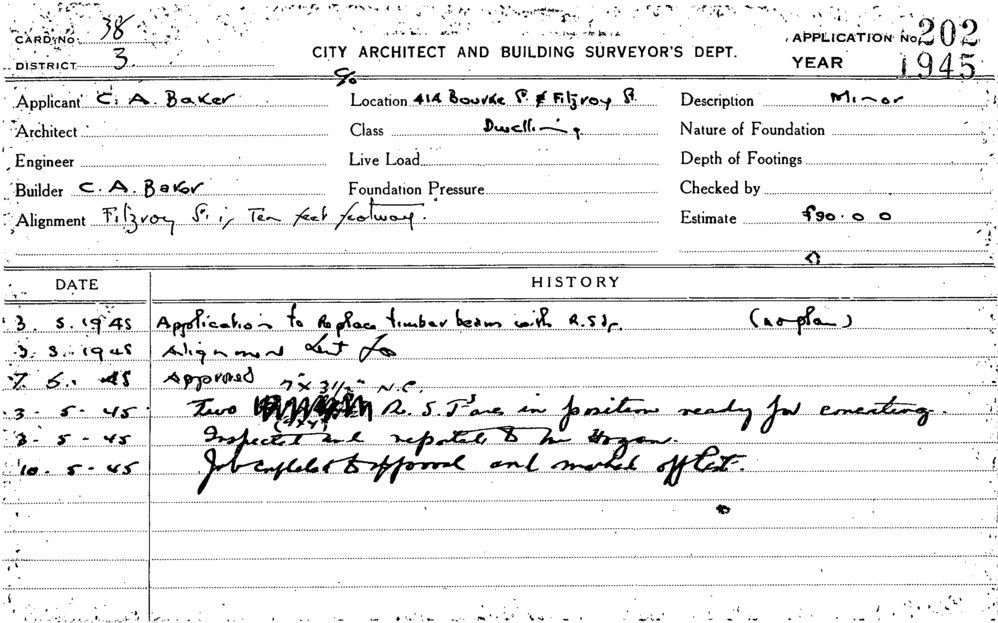 CARD No. 38
DISTRICT 3
CITY ARCHITECT AND BUILDING SURVEYOR'S DEPT.
APPLICATION No. 202
YEAR 1945
Applicant C. A. Baker
c/o
Location 414 Bourke St. & Fitzroy St.
Description Minor
Architect
Class Dwelling
Nature of Foundation
Engineer
Live Load
Depth of Footings
Builder C. A. Baker
Foundation Pressure
Checked by
Alignment Fitzroy St. is Ten feet footway.
Estimate £90.0 0
DATE HISTORY
3. 5. 1945 Application to Replace timber beam with R.S.Js. (no plan)
3. 5. 1945 Alignment
7. 5. 45 Approved
7" x 3½" N.C.
3 - 5 - 45 Two R. S. J's are in position ready for concreting.
3 - 5 - 45 Inspected and reported to Mr Hogan.
10 - 5 - 45 Job completed to approval and marked off list.